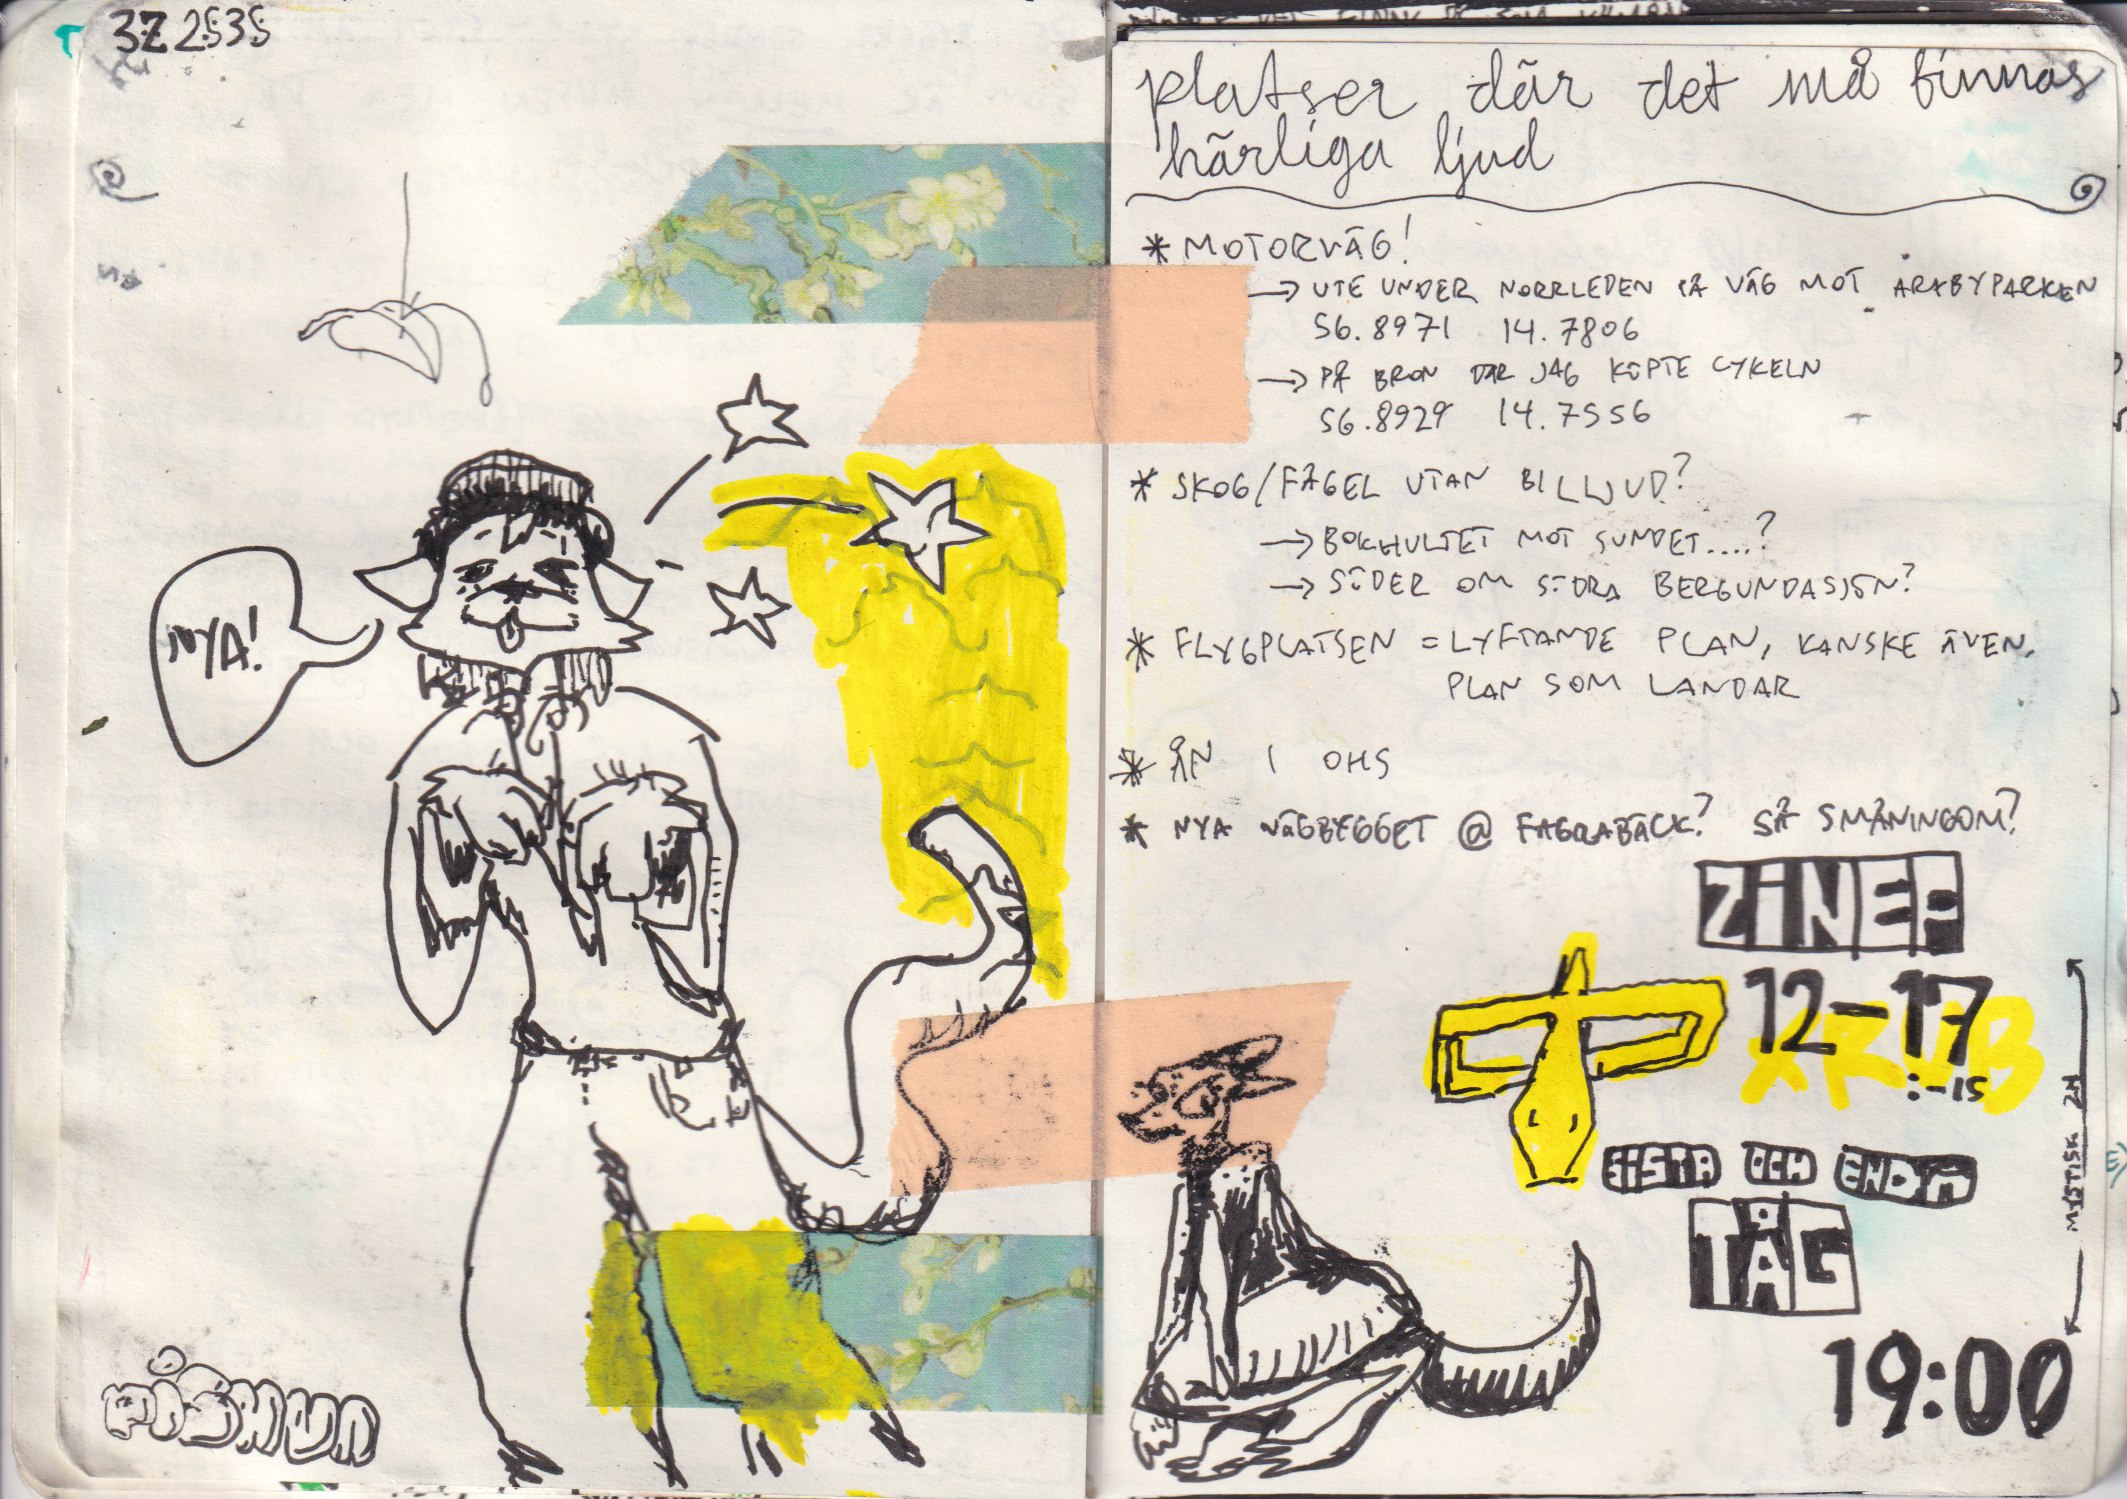 NYA!
platser där det må finnas
härliga ljud
* MOTORVÄG!
→ UTE UNDER NORRLEDEN PÅ VÄG MOT ARABYPARKEN
56.8971 14.7806
→ PÅ BRON DÄR JAG KÖPTE CYKELN
56.8929 14.7556
* SKOG/FÅGEL UTAN BILLJUD?
→ BOKHULTET MOT SUNDET....?
→ SÖDER OM SÖDRA BERGUNDASJÖN?
* FLYGPLATSEN = LYFTANDE PLAN, KANSKE ÄVEN
PLAN SOM LANDAR
* ÅN I OHS
* NYA VÄGBYGGET @ FAGRABÄCK? SÅ SMÅNINGOM?
ZINEF
12-17
:-15
SISTA OCH ENDA
TÅG
MYSTISK 2H
19:00